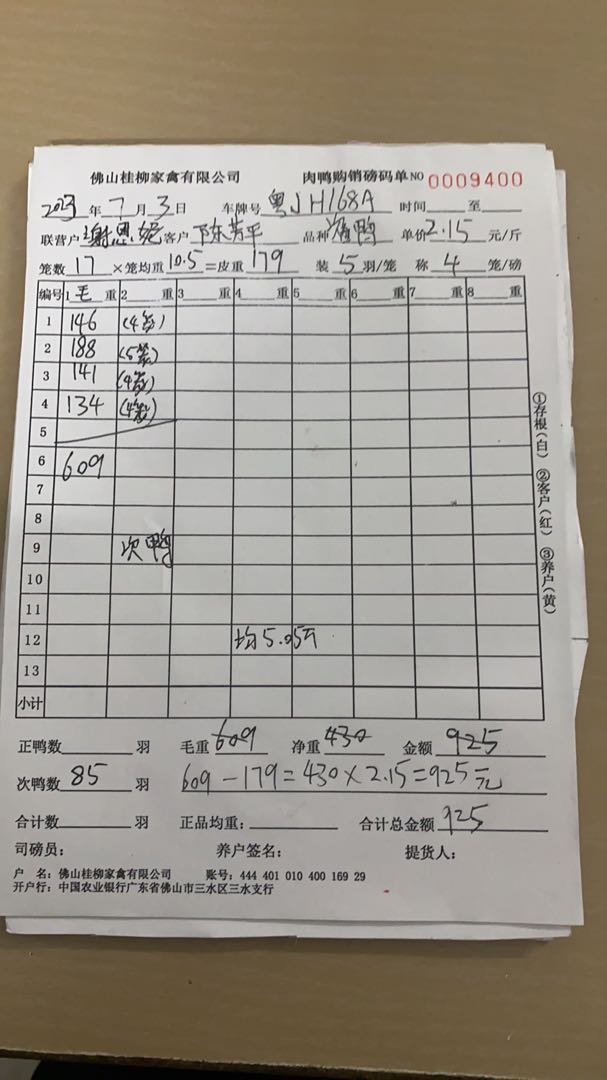 佛山桂柳家禽有限公司 肉鸭购销磅码单 NO 0009400
2023年7月3日 车牌号 粤JH168A 时间 至
联营户 谢恩 客户 陈芳平 品种 鸭 单价2.15元/斤
笼数 17 ×笼均重10.5=皮重 179 装 5 羽/笼 称 4 笼/磅
编号 1 毛 重 2 重 3 重 4 重 5 重 6 重 7 重 8 重
1 146 (4笼)
2 188 (5笼)
3 141 (4笼)
4 134 (4笼)
5
6 609
7
8
9 次鸭
10
11
12 均5.05斤
13
小计
①存根(白) ②客户(红) ③养户(黄)
正鸭数 羽 毛重 609 净重 430 金额 925
次鸭数 85 羽 609-179=430×2.15=925元
合计数 羽 正品均重: 合计总金额 925
司磅员: 养户签名: 提货人:
户 名: 佛山桂柳家禽有限公司 账号: 444 401 010 400 169 29
开户行: 中国农业银行广东省佛山市三水区三水支行